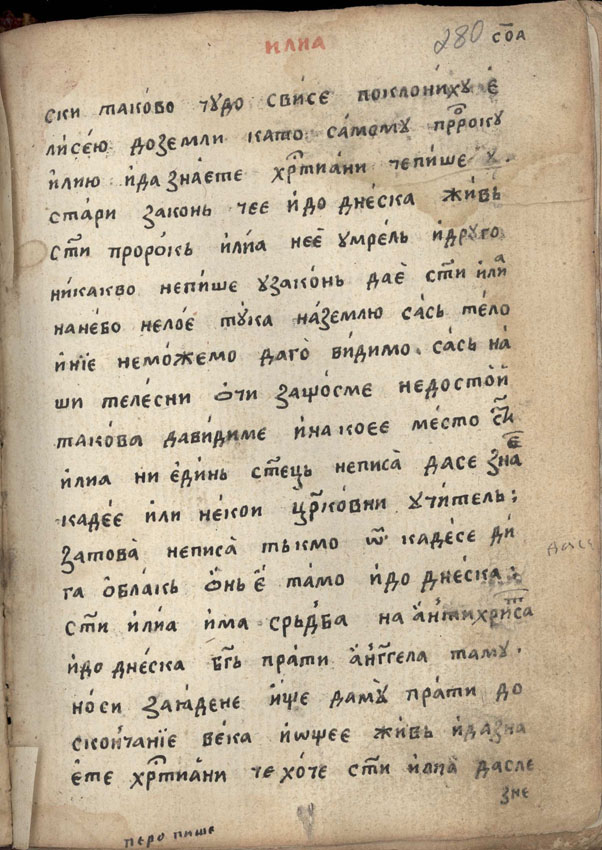 илиа
280 соа
ски тако́во чꙋдо сви́се поклони́хꙋ є҆
ли́се́ю доземли като са́момꙋ прⷪ҇рокꙋ
и҆лию и҆да зна́ете хрⷭ҇тиа́ни чепи́ше ꙋ҆
ста́ри законь чеє и҆до дне́ска жи́вь
ст҃и проро́кь и҆ли́а неє҆ ꙋмре́ль и҆дрꙋго
ни́какво непи́ше ꙋзако́нь дає҆ ст҃и и҆ли́а
нане́бо нело́є тꙋ́ка на́землю са́сь те́ло
и҆нїе немо́жемо даго̀ ви́димо са́сь на́
ши теле́сни ѻ҆чи защо́сме недосто́й
тако́ва дави́диме и҆на коєє ме́сто ст҃и
и҆лиа ни є҆ди́нь ст҃ець неписа̀ дасе зна́є
каде́є и҆ли не́кои цр҃ко́вни ꙋчи́тель;
затова̀ неписа̀ тькмо ѿ каде́се ди́
га ѻ҆́блакь ѻ҆́нь є҆ та́мо и҆до дне́ска;
ст҃и и҆лиа и҆́ма срьдба на а҆нтихри́ста
и҆до дне́ска бг҃ь пра́ти а҆нг҃гела тамꙋ
но́си заꙗ́дене и҆ще дамꙋ̀ пра́ти до
сконча́нїе ве́ка и҆ѡщеє жи́вь и҆дазна
є҆те хрⷭ҇тиа́ни че хо́че ст҃и и҆лиа̀ дасле
зне
перо пише